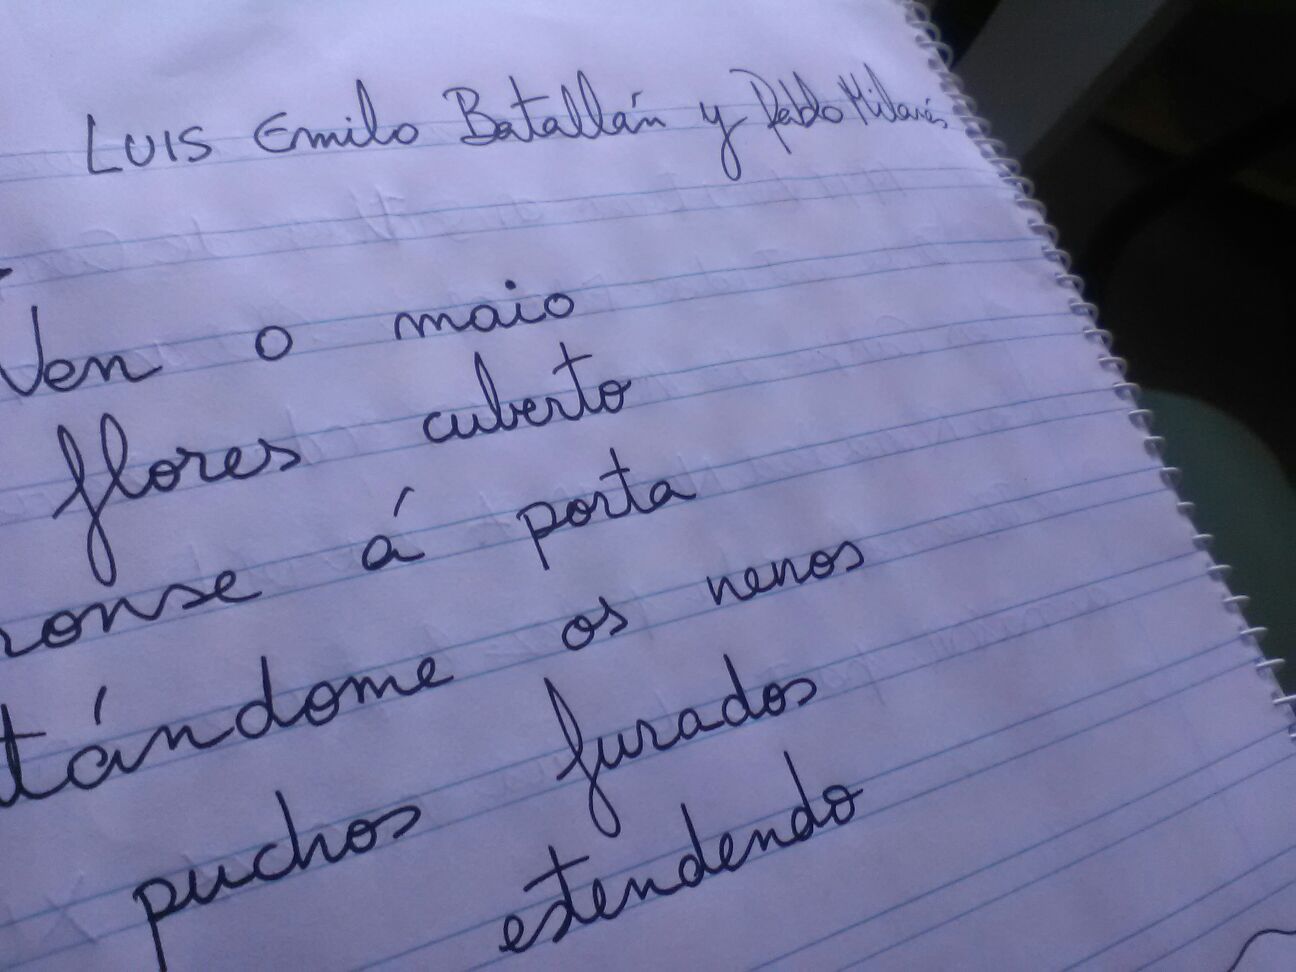 LUIS Emilo Batallán y Pablo Milanés
Ven o maio
flores cuberto
ronse á porta
tándome os nenos
puchos furados
estendendo